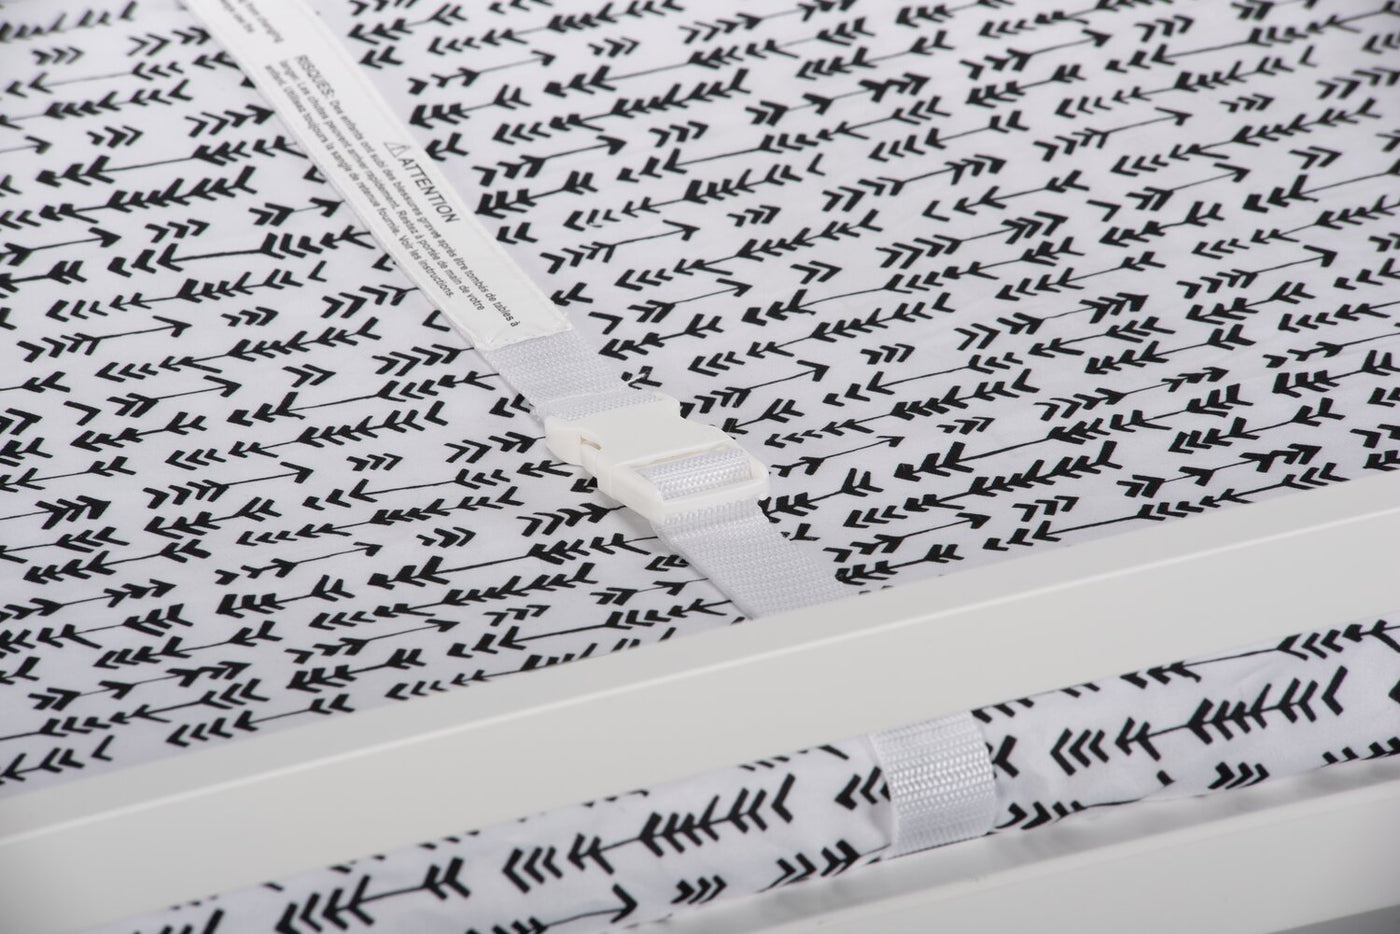 ⚠ATTENTION
RISQUES: Des enfants ont subi des blessures graves après être tombés de tables à
langer. Les chutes peuvent arriver rapidement. Restez à portée de main de votre
enfant. Utilisez toujours la sangle de retenue fournie. Voir les instructions.